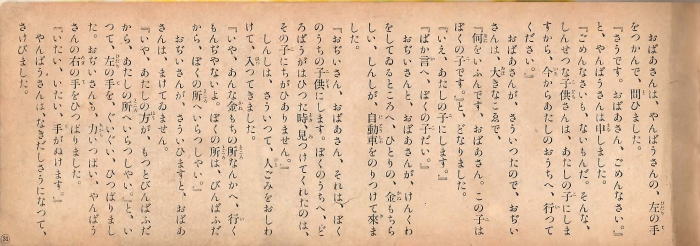 おばあさんは、やんぼうさんの、左の手
をつかんで、問ひました。
『さうです。おばあさん、ごめんなさい。』
と、やんぼうさんは申しました。
『ごめんなさいも、ないもんだ。そんな、
しんせつな子供さんは、あたしの子にしま
すから、今からあたしのおうちへ、行つて
ください。』
おばあさんが、さういつたので、おぢい
さんは、大きなこゑで、
『何をいふんです、おばあさん。この子は
ぼくの子です。』と、どなりました。
『いえ、あたしの子にします。』
『ばか言へ、ぼくの子だい。』
おぢいさんと、おばあさんが、けんくわ
をしてゐるところへ、ひとりの、金もちら
しい、しんしが、自動車をのりつけて來ま
した。
『おぢいさん、おばあさん、それは、ぼく
のうちの子供にします。ぼくのうちへ、ど
ろばうがはひつた時、見つけてくれたのは、
その子にちがひありません。』
しんしは、さういつて、人ごみをおしわ
けて、入つてきました。
『いや、あんな金もちの所なんかへ、行く
もんぢやないよ。ぼくの所は、びんばふだ
から、ぼくの所へいらつしやい。』
おぢいさんが、さういひますと、おばあ
さんは、まけてゐません。
『いや、あたしの方が、もつとびんばふだ
から、あたしの所へいらつしやい。』と、い
つて、左の手を、ぐいぐい、ひつぱりまし
た。おぢいさんも、力いつぱい、やんぼう
さんの右の手をひつぱりました。
『いたい、いたい、手がぬけます。』
やんぼうさんはなきだしさうになつて、
さけびました。